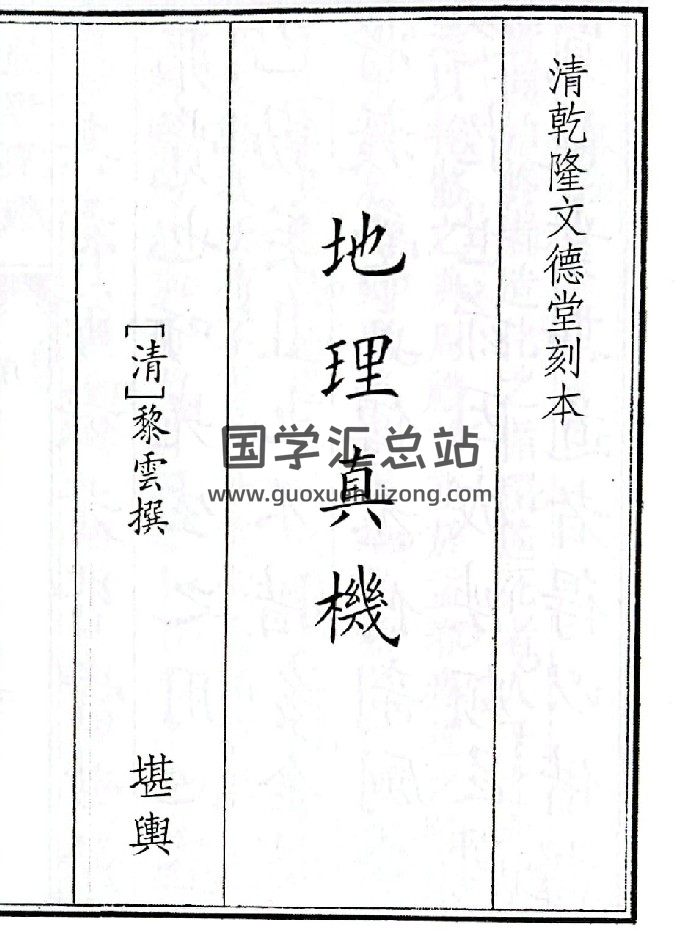 清乾隆文德堂刻本
地理真機
[清]黎雲撰
堪輿
国学汇总站
www.guoxuehuizong.com